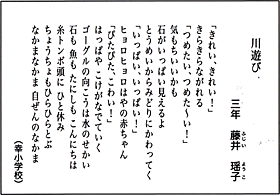 川遊び
三年 藤井 瑶子
ふじい ようこ
「きれい、きれい!」
きらきらながれる
「つめたい、つめた〜い!」
気もちいいかも
石がいっぱい見えるよ
とうめいからみどりにかわってく
「いっぱい、いっぱい!」
ヒョロヒョロはやの赤ちゃん
「ぴたぴた、こわい!」
はっぱやこけがながれていく
ゴーグルの向こうは水のせかい
石も魚も たにしも こんにちは
糸トンボ頭に ひと休み
ちょうちょもひらひらとぶ
なかまなかま 自ぜんのなかま
(幸小学校)